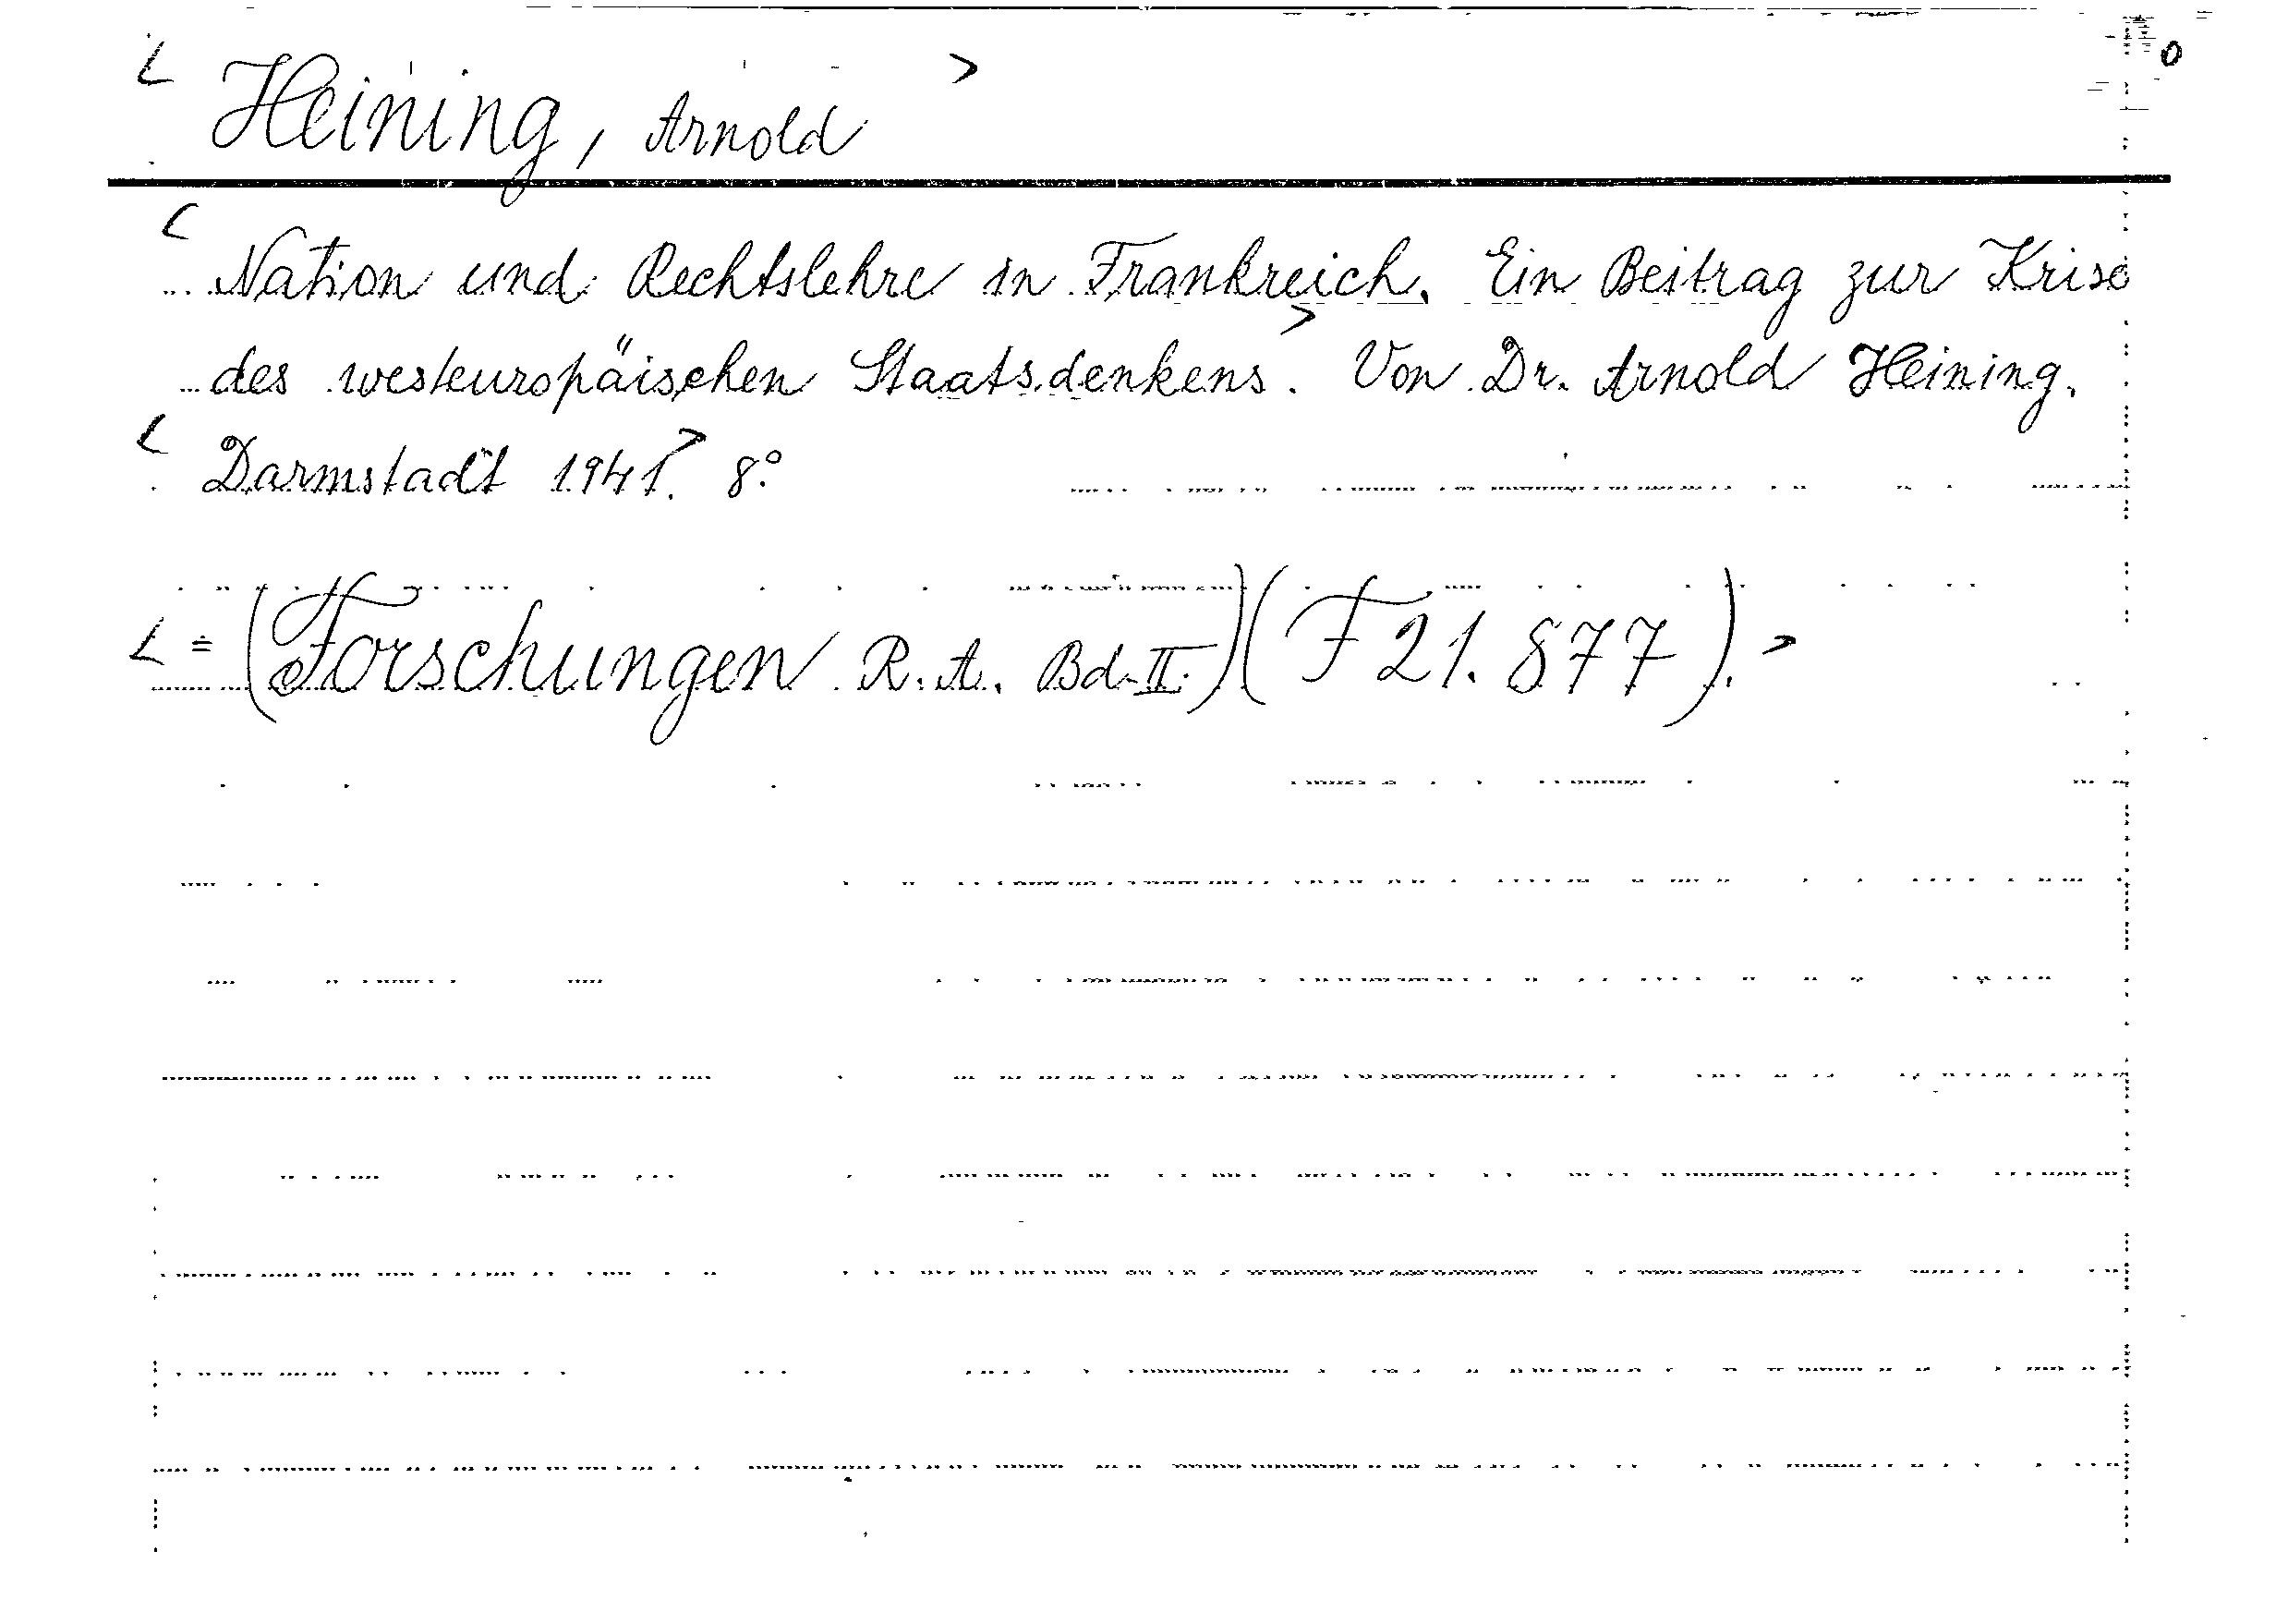 < Heining, Arnold > 0
< Nation und Rechtslehre in Frankreich. Ein Beitrag zur Krise
des westeuropäischen Staatsdenkens.> Von Dr. Arnold Heining.
< Darmstadt 1941.> 8°.
< = (Forschungen R. A. Bd. II.) (F 21. 877). >